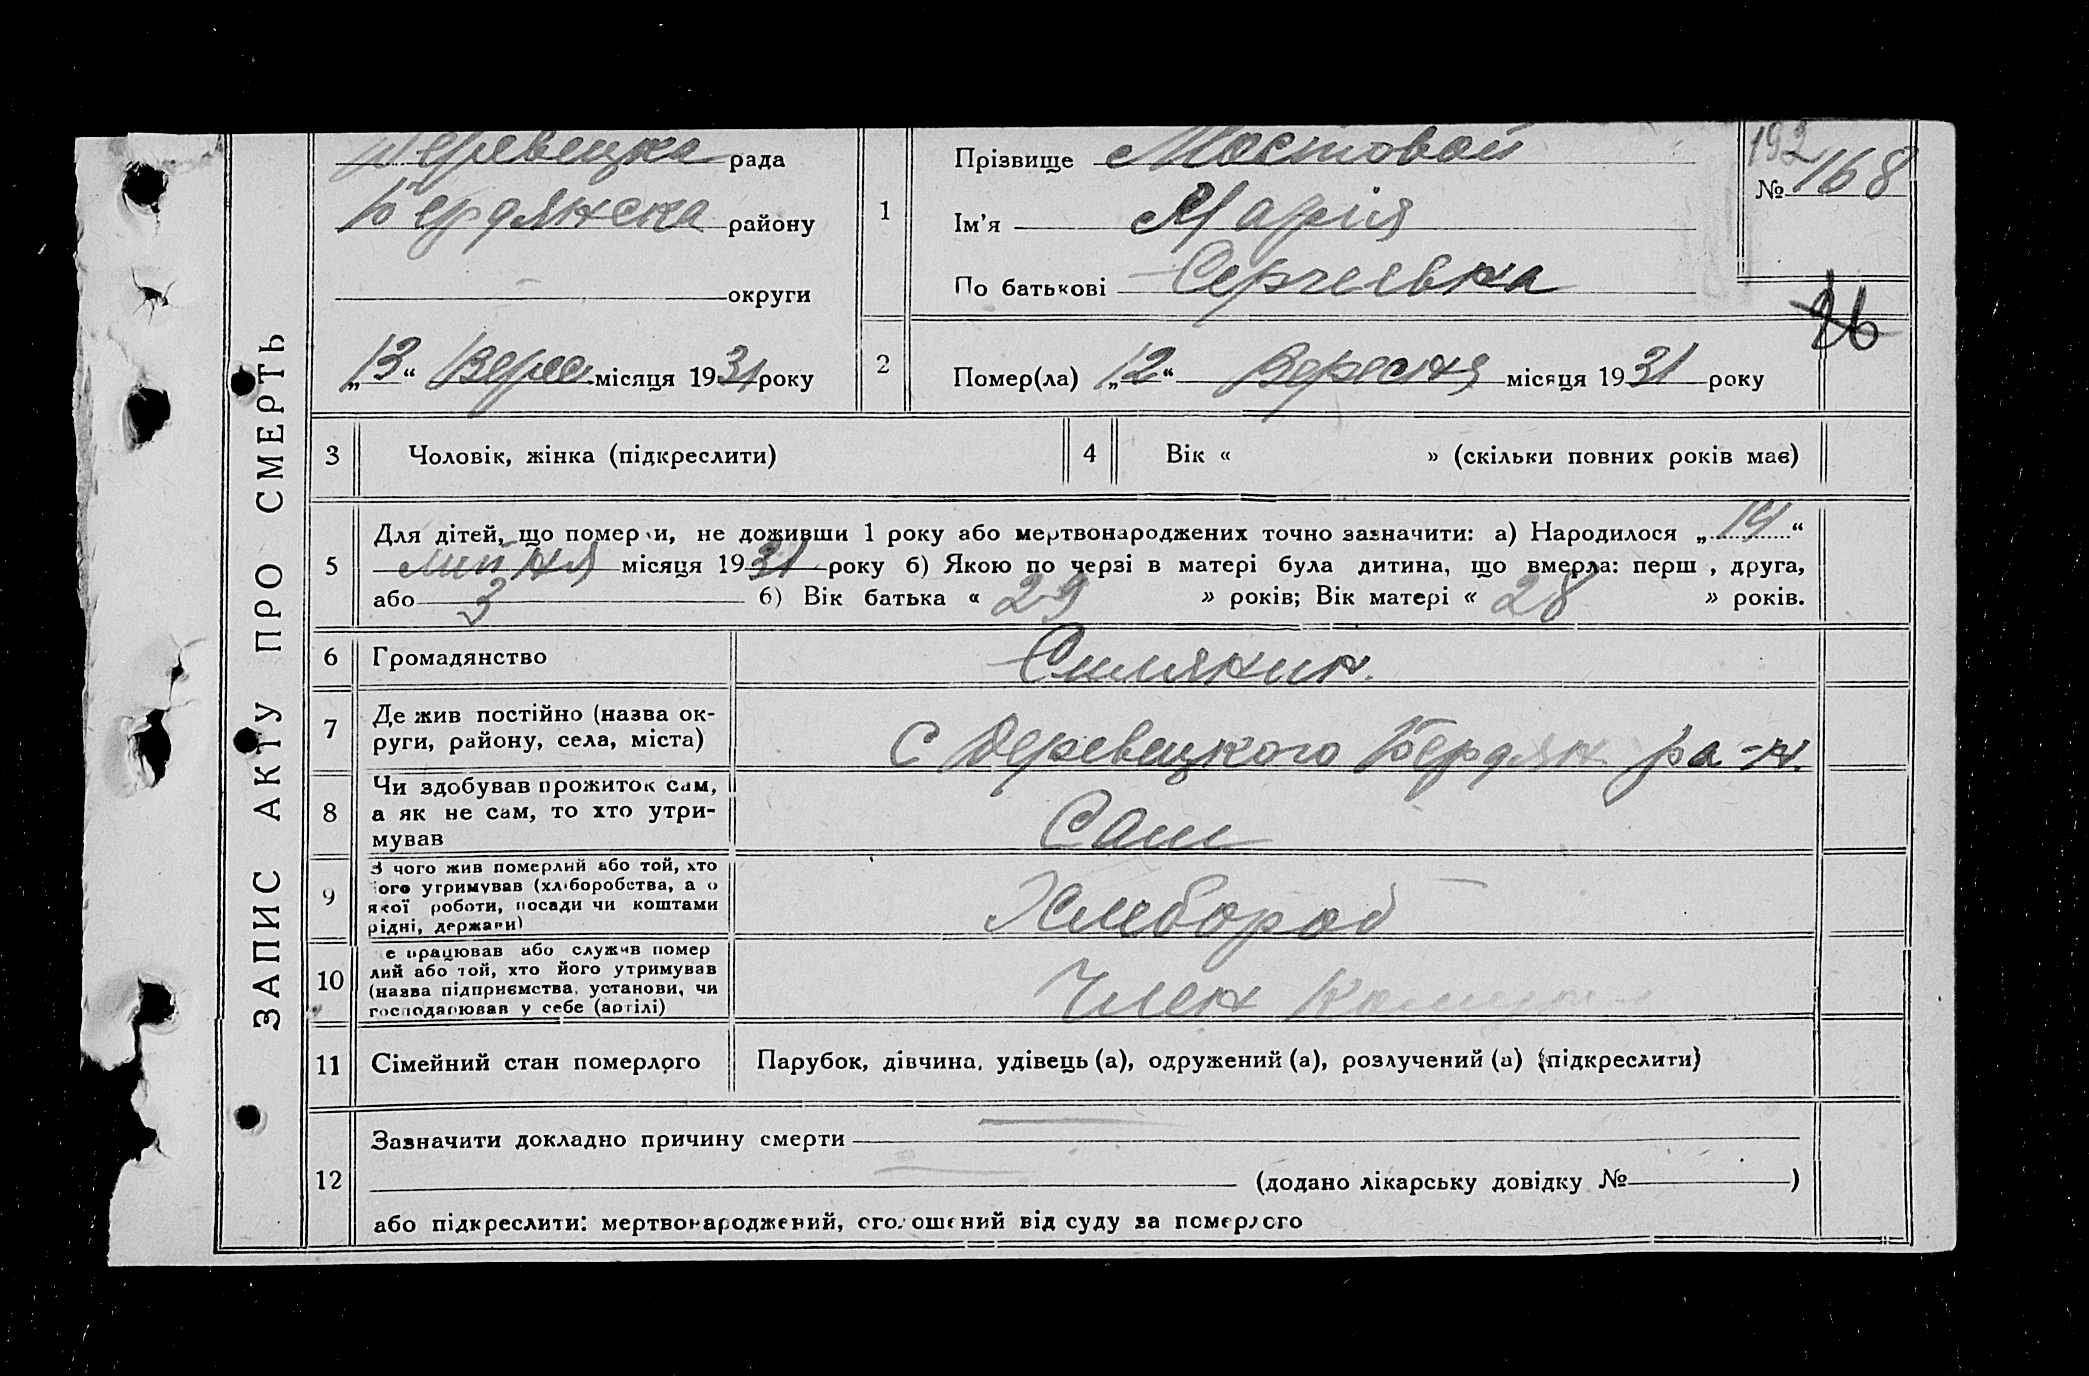 ЗАПИС АКТУ ПРО СМЕРТЬ
Деревецка рада
Бердянска району
округи
„13“ Верес місяця 1931 року
1
Прізвище Мостовой
Ім'я Марія
По батькові Сергиевна
192
№ 168
26
2
Помер(ла) „12“ Вересня місяця 1931 року
3 Чоловік, жінка (підкреслити)
4 Вік « » (скільки повних років має)
5 Для дітей, що померли, не доживши 1 року або мертвонароджених точно зазначити: а) Народилося „14“
липня місяця 1931 року б) Якою по черзі в матері була дитина, що вмерла: перш , друга,
або 3 б) Вік батька « 29 » років; Вік матері « 28 » років.
6 Громадянство Силянин.
7 Де жив постійно (назва ок-
руги, району, села, міста)
С Деревецкого Бердян ра-н.
8 Чи здобував прожиток сам,
а як не сам, то хто утри-
мував
Сам
9 З чого жив померлий або той, хто
його утримував (хліборобства, а о
якої роботи, посади чи коштами
рідні, держави)
Хлебороб
10 е працював або служив помер
лий або той, хто його утримував
(назва підприємства, установи, чи
господарював у себе (артілі)
Член
11 Сімейний стан померлого Парубок, дівчина, удівець (а), одружений (а), розлучений (а) (підкреслити)
12 Зазначити докладно причину смерти
(додано лікарську довідку № )
або підкреслити: мертвонароджений, оголошений від суду за померлого